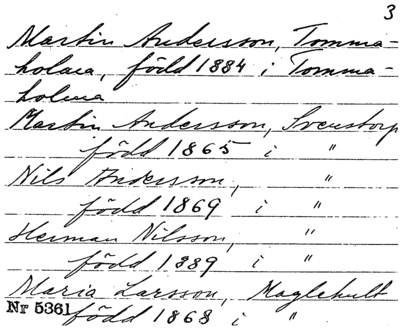 3
Martin Andersson, Tomma-
holma, född 1884 i Tomma-
holma
Martin Andersson, Svenstorp
född 1865 i "
Nils Andersson, "
född 1869 i "
Herman Nilsson, "
född 1889 i "
Maria Larsson, Maglehult
Nr 5361 född 1868 i "